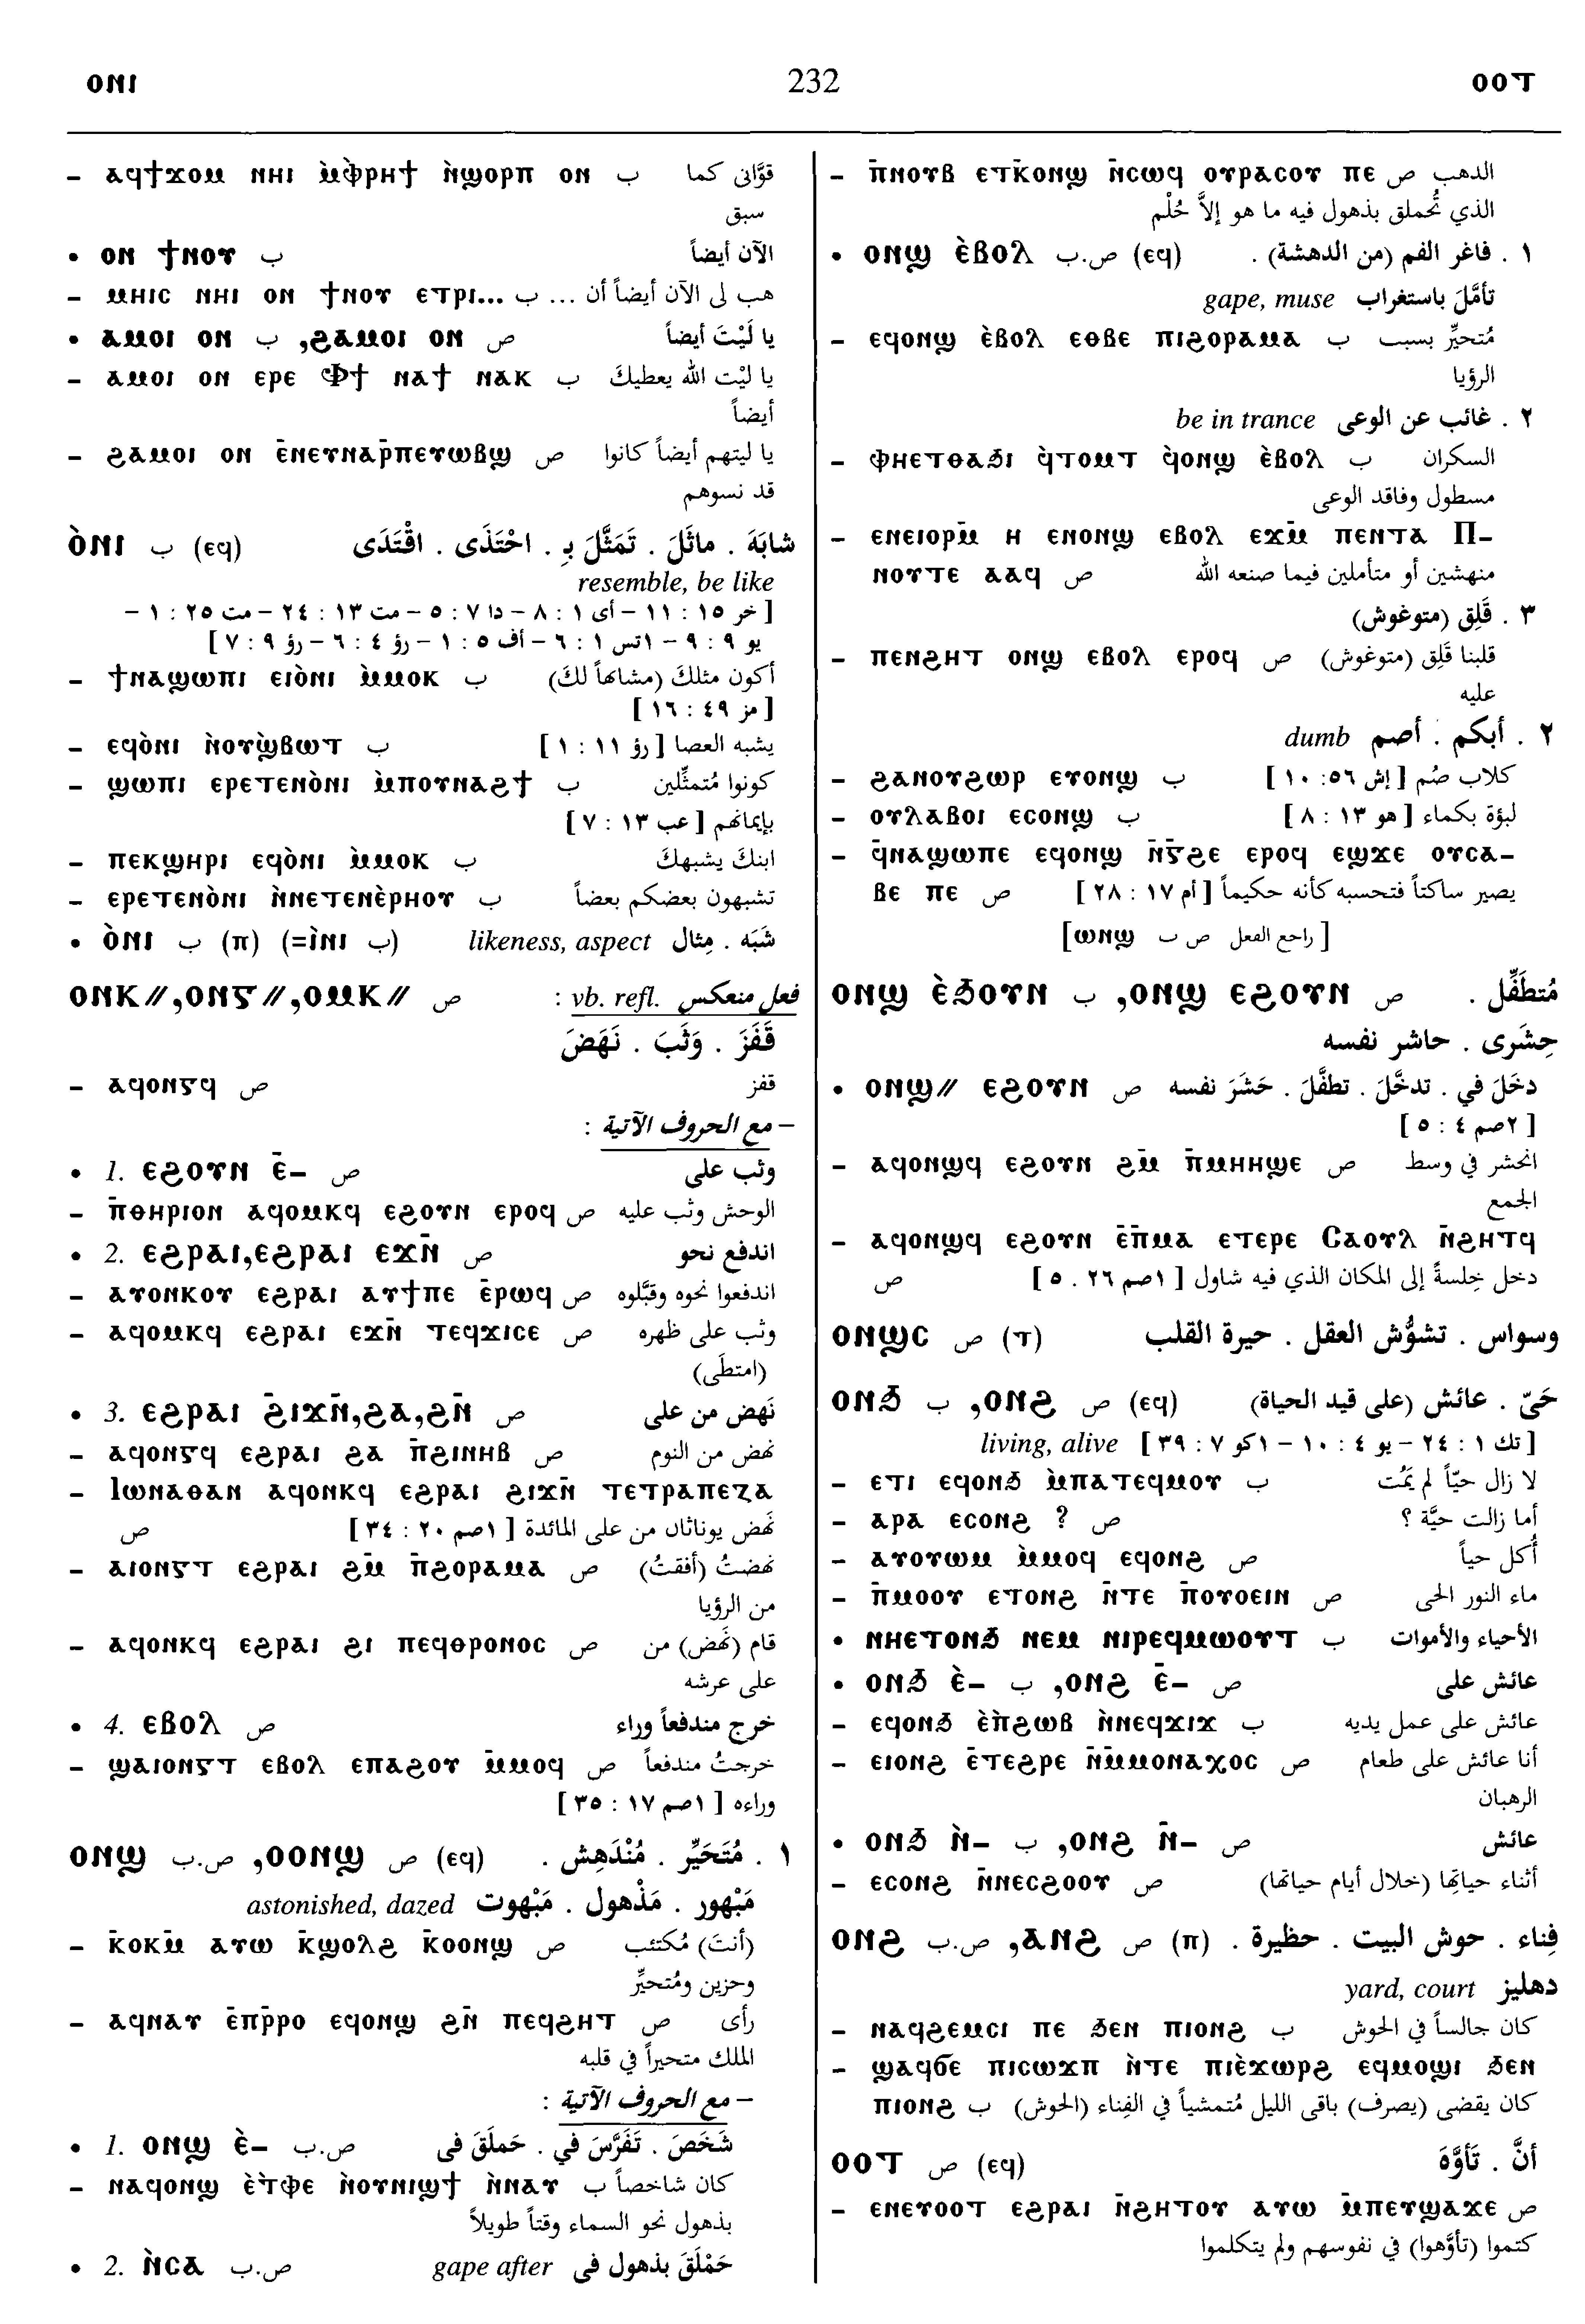 ⲟⲛⲓ 232 ⲟⲟⲧ
– ⲁϥϯϫⲟⲙ ⲛⲏⲓ ⲙ̀ⲫⲣⲏϯ ⲛ̀ϣⲟⲣⲡ ⲟⲛ ب قوَّانى كما
سبق
• ⲟⲛ ϯⲛⲟⲩ ب الآن أيضاً
– ⲙⲏⲓⲥ ⲛⲏⲓ ⲟⲛ ϯⲛⲟⲩ ⲉⲧⲣⲓ... ب هب لى الآن أيضاً أن ...
• ⲁⲙⲟⲓ ⲟⲛ ب ,ϩⲁⲙⲟⲓ ⲟⲛ ص يا لَيْتَ أيضاً
– ⲁⲙⲟⲓ ⲟⲛ ⲉⲣⲉ Ⲫϯ ⲛⲁϯ ⲛⲁⲕ ب يا ليْت الله يعطيكَ
أيضاً
– ϩⲁⲙⲟⲓ ⲟⲛ ⲉ̄ⲛⲉⲩⲛⲁⲣ̄ⲡⲉⲩⲱⲃϣ ص يا ليتهم أيضاً كانوا
قد نسوهم
ⲟ̀ⲛⲓ ب (ⲉϥ) شابَهَ . ماثَلَ . تَمَثَّلَ بـِ . احْتَذَى . اقْتَدَى
resemble, be like
[ خر ١٥ : ١١ – أى ١ : ٨ – دا ٧ : ٥ – مت ١٣ : ٢٤ – مت ٢٥ : ١ –
يو ٩ : ٩ – ١تس ١ : ٦ – أف ٥ : ١ – رؤ ٤ : ٦ – رؤ ٩ : ٧ ]
– ϯⲛⲁϣⲱⲡⲓ ⲉⲓⲟ̀ⲛⲓ ⲙ̀ⲙⲟⲕ ب أكون مثلكَ (مشابهاً لكَ)
[ مز ٤٩ : ١٦ ]
– ⲉϥⲟ̀ⲛⲓ ⲛ̀ⲟⲩϣ̀ⲃⲱⲧ ب يشبه العصا [ رؤ ١١ : ١ ]
– ϣⲱⲡⲓ ⲉⲣⲉⲧⲉⲛⲟ̀ⲛⲓ ⲙ̀ⲡⲟⲩⲛⲁϩϯ ب كونوا مُتمثِّلين
بإيمانهم [ عب ١٣ : ٧ ]
– ⲡⲉⲕϣⲏⲣⲓ ⲉϥⲟ̀ⲛⲓ ⲙ̀ⲙⲟⲕ ب ابنكَ يشبهكَ
– ⲉⲣⲉⲧⲉⲛⲟ̀ⲛⲓ ⲛ̀ⲛⲉⲧⲉⲛⲉ̀ⲣⲏⲟⲩ ب تشبهون بعضكم بعضاً
• ⲟ̀ⲛⲓ ب (ⲡ) (=ⲓ̀ⲛⲓ ب) likeness, aspect شَبَه . مِثال
ⲟⲛⲕ//,ⲟⲛⲅ̄//,ⲟⲙⲕ// ص فعل منعكس vb. refl. :
قَفَزَ . وَثَبَ . نَهَضَ
– ⲁϥⲟⲛⲅ̄ϥ ص قفز
– مع الحروف الآتية :
• 1. ⲉϩⲟⲩⲛ ⲉ̄– ص وثب على
– ⲡ̄ⲑⲏⲣⲓⲟⲛ ⲁϥⲟⲙⲕϥ ⲉϩⲟⲩⲛ ⲉⲣⲟϥ ص الوحش وثب عليه
• 2. ⲉϩⲣⲁⲓ,ⲉϩⲣⲁⲓ ⲉϫⲛ̄ ص اندفع نحو
– ⲁⲩⲟⲛⲕⲟⲩ ⲉϩⲣⲁⲓ ⲁⲩϯⲡⲉ ⲉ̄ⲣⲱϥ ص اندفعوا نحوه وقبَّلوه
– ⲁϥⲟⲙⲕϥ ⲉϩⲣⲁⲓ ⲉϫⲛ̄ ⲧⲉϥϫⲓⲥⲉ ص وثب على ظهره
(امتطى)
• 3. ⲉϩⲣⲁⲓ ϩ̄ⲓϫⲛ̄,ϩⲁ,ϩⲛ̄ ص نَهض من على
– ⲁϥⲟⲛⲅ̄ϥ ⲉϩⲣⲁⲓ ϩⲁ ⲡ̄ϩⲓⲛⲏⲃ ص نهض من النوم
– Ⲓⲱⲛⲁⲑⲁⲛ ⲁϥⲟⲛⲕϥ ⲉϩⲣⲁⲓ ϩⲓϫⲛ̄ ⲧⲉⲧⲣⲁⲡⲉⲍⲁ
نهض يوناثان من على المائدة [ ١صم ٢٠ : ٣٤ ] ص
– ⲁⲓⲟⲛⲅ̄ⲧ ⲉϩⲣⲁⲓ ϩⲙ̄ ⲡ̄ϩⲟⲣⲁⲙⲁ ص نهضتُ (أفقتُ)
من الرؤيا
– ⲁϥⲟⲛⲕϥ ⲉϩⲣⲁⲓ ϩⲓ ⲡⲉϥⲑⲣⲟⲛⲟⲥ ص قام (نَهض) من
على عرشه
• 4. ⲉⲃⲟⲗ ص خرج مندفعاً وراء
– ϣⲁⲓⲟⲛⲅ̄ⲧ ⲉⲃⲟⲗ ⲉⲡⲁϩⲟⲩ ⲙ̄ⲙⲟϥ ص خرجتُ مندفعاً
وراءه [ ١صم ١٧ : ٣٥ ]
ⲟⲛϣ ص.ب ,ⲟⲟⲛϣ ص (ⲉϥ) ١ . مُتَحَيِّر . مُنْدَهِش .
مَبْهور . مَذْهول . مَبْهوت astonished, dazed
– ⲕ̄ⲟⲕⲙ̄ ⲁⲩⲱ ⲕ̄ϣⲟⲗϩ ⲕ̄ⲟⲟⲛϣ ص (أنتَ) مُكتئب
وحزين ومُتحيِّر
– ⲁϥⲛⲁⲩ ⲉ̄ⲡⲣ̄ⲣⲟ ⲉϥⲟⲛϣ ϩⲛ̄ ⲡⲉϥϩⲏⲧ ص رأى
الملك متحيراً في قلبه
– مع الحروف الآتية :
• 1. ⲟⲛϣ ⲉ̀– ص.ب شَخَصَ . تَفَرَّسَ في . حَملَقَ فى
– ⲛⲁϥⲟⲛϣ ⲉ̀ⲧ̀ⲫⲉ ⲛ̀ⲟⲩⲛⲓϣϯ ⲛ̀ⲛⲁⲩ ب كان شاخصاً
بذهول نحو السماء وقتاً طويلاً
• 2. ⲛ̀ⲥⲁ ص.ب gape after حَمْلَقَ بذهول فى
– ⲡ̄ⲛⲟⲩⲃ ⲉⲧⲕ̄ⲟⲛϣ ⲛ̄ⲥⲱϥ ⲟⲩⲣⲁⲥⲟⲩ ⲡⲉ ص الذهب
الذي تُحملق بذهول فيه ما هو إلاَّ حُلْم
• ⲟⲛϣ ⲉ̀ⲃⲟⲗ ص.ب (ⲉϥ) ١ . فاغر الفم (من الدهشة) .
تأمَّلَ باستغراب gape, muse
– ⲉϥⲟⲛϣ ⲉ̀ⲃⲟⲗ ⲉⲑⲃⲉ ⲡⲓϩⲟⲣⲁⲙⲁ ب مُتحيِّر بسبب
الرؤيا
٢ . غائب عن الوعى be in trance
– ⲫⲏⲉⲧⲑⲁϧⲓ ϥ̀ⲧⲟⲙⲧ ϥ̀ⲟⲛϣ ⲉ̀ⲃⲟⲗ ب السكران
مسطول وفاقد الوعى
– ⲉⲛⲉⲓⲟⲣⲙ̄ ⲏ ⲉⲛⲟⲛϣ ⲉⲃⲟⲗ ⲉϫⲙ̄ ⲡⲉⲛⲧⲁ Ⲡ–
ⲛⲟⲩⲧⲉ ⲁⲁϥ ص منهشين أو متأملين فيما صنعه الله
٣ . قَلِق (متوغوش)
– ⲡⲉⲛϩⲏⲧ ⲟⲛϣ ⲉⲃⲟⲗ ⲉⲣⲟϥ ص قلبنا قَلِق (متوغوش)
عليه
٢ . أبكم . أصم dumb
– ϩⲁⲛⲟⲩϩⲱⲣ ⲉⲩⲟⲛϣ ب كلاب صُم [ إش ٥٦: ١٠ ]
– ⲟⲩⲗⲁⲃⲟⲓ ⲉⲥⲟⲛϣ ب لبؤة بكماء [ هو ١٣ : ٨ ]
– ϥ̄ⲛⲁϣⲱⲡⲉ ⲉϥⲟⲛϣ ⲛ̄ⲅ̄ϩⲉ ⲉⲣⲟϥ ⲉϣϫⲉ ⲟⲩⲥⲁ–
ⲃⲉ ⲡⲉ ص يصير ساكتاً فتحسبه كأنه حكيماً [ أم ١٧ : ٢٨ ]
[ راجع الفعل ص ب ⲱⲛϣ]
ⲟⲛϣ ⲉ̀ϧⲟⲩⲛ ب ,ⲟⲛϣ ⲉϩⲟⲩⲛ ص مُتطَفِّل .
حِشَرى . حاشر نفسه
• ⲟⲛϣ// ⲉϩⲟⲩⲛ ص دخَلَ في . تدخَّلَ . تطفَّلَ . حَشَرَ نفسه
[ ٢صم ٤ : ٥ ]
– ⲁϥⲟⲛϣϥ ⲉϩⲟⲩⲛ ϩⲙ̄ ⲡ̄ⲙⲏⲏϣⲉ ص انحشر في وسط
الجمع
– ⲁϥⲟⲛϣϥ ⲉϩⲟⲩⲛ ⲉ̄ⲡ̄ⲙⲁ ⲉⲧⲉⲣⲉ Ⲥⲁⲟⲩⲗ ⲛ̄ϩⲏⲧϥ
دخل خِلسةً إلى المكان الذي فيه شاول [ ١صم ٢٦ . ٥ ] ص
ⲟⲛϣⲥ ص (ⲧ) وسواس . تشوُّش العقل . حيرة القلب
ⲟⲛϧ ب ,ⲟⲛϩ ص (ⲉϥ) حَيّ . عائش (على قيد الحياة)
living, alive [ تك ١ : ٢٤ – يو ٤ : ١٠ – ١كو ٧ : ٣٩ ]
– ⲉⲧⲓ ⲉϥⲟⲛϧ ⲙ̀ⲡⲁⲧⲉϥⲙⲟⲩ ب لا زال حيّاً لم يَمُت
– ⲁⲣⲁ ⲉⲥⲟⲛϩ ? ص أما زالت حيَّة ؟
– ⲁⲩⲟⲩⲱⲙ ⲙ̀ⲙⲟϥ ⲉϥⲟⲛϩ ص أُكل حياً
– ⲡ̄ⲙⲟⲟⲩ ⲉⲧⲟⲛϩ ⲛ̄ⲧⲉ ⲡ̄ⲟⲩⲟⲉⲓⲛ ص ماء النور الحى
• ⲛⲏⲉⲧⲟⲛϧ ⲛⲉⲙ ⲛⲓⲣⲉϥⲙⲱⲟⲩⲧ ب الأحياء والأموات
• ⲟⲛϧ ⲉ̀– ب ,ⲟⲛϩ ⲉ̄– ص عائش على
– ⲉϥⲟⲛϧ ⲉ̀ⲡ̀ϩⲱⲃ ⲛ̀ⲛⲉϥϫⲓϫ ب عائش على عمل يديه
– ⲉⲓⲟⲛϩ ⲉ̄ⲧⲉϩⲣⲉ ⲛ̄ⲙ̄ⲙⲟⲛⲁⲭⲟⲥ ص أنا عائش على طعام
الرهبان
• ⲟⲛϧ ⲛ̀– ب ,ⲟⲛϩ ⲛ̄– ص عائش
– ⲉⲥⲟⲛϩ ⲛ̄ⲛⲉⲥϩⲟⲟⲩ ص أثناء حياتِها (خلال أيام حياتها)
ⲟⲛϩ ص.ب ,ⲁⲛϩ ص (ⲡ) فِناء . حوش البيت . حظيرة .
دهليز yard, court
– ⲛⲁϥϩⲉⲙⲥⲓ ⲡⲉ ϧⲉⲛ ⲡⲓⲟⲛϩ ب كان جالساً في الحوش
– ϣⲁϥϭⲉ ⲡⲓⲥⲱϫⲡ ⲛ̀ⲧⲉ ⲡⲓⲉ̀ϫⲱⲣϩ ⲉϥⲙⲟϣⲓ ϧⲉⲛ
ⲡⲓⲟⲛϩ ب كان يقضى (يصرف) باقى الليل مُتمشياً في الفِناء (الحوش)
ⲟⲟⲧ ص (ⲉϥ) أنَّ . تَأوَّهَ
– ⲉⲛⲉⲩⲟⲟⲧ ⲉϩⲣⲁⲓ ⲛ̄ϩⲏⲧⲟⲩ ⲁⲩⲱ ⲙ̄ⲡⲉⲩϣⲁϫⲉ ص
كتموا (تأوَّهوا) في نفوسهم ولم يتكلموا